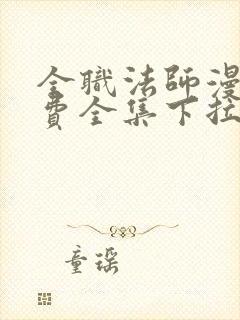 全職法師漫
費全集下拉
童琛